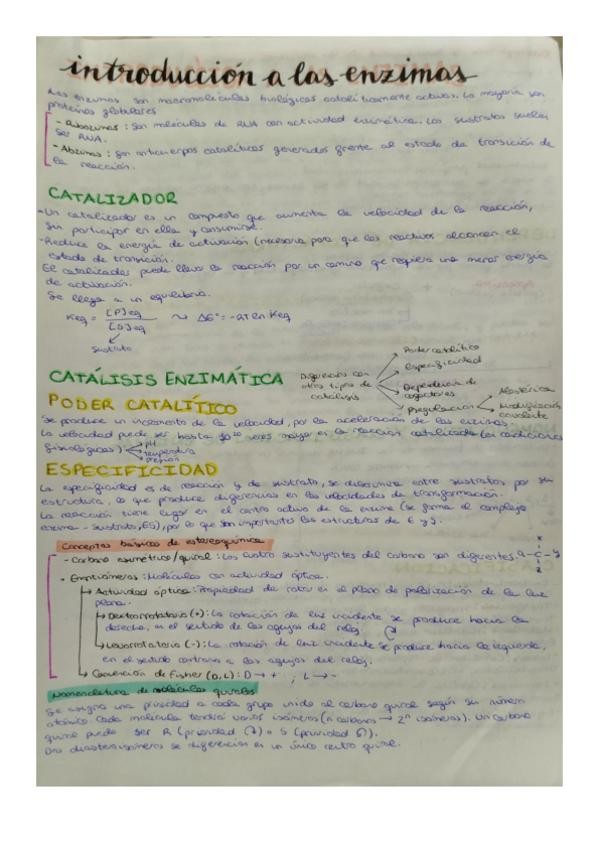 introducción a las enzimas
Las enzimas son macromoléculas biológicas catalíticamente activas. La mayoría son
proteínas globulares
- Ribozimas: Son moléculas de RNA con actividad enzimática. Los sustratos suelen
ser RNA.
- Abzimas: Son anticuerpos catalíticos generados frente al estado de transición de
la reacción.
CATALIZADOR
- Un catalizador es un compuesto que aumenta la velocidad de la reacción,
sin participar en ella y consumirse.
- Reduce la energía de activación (necesaria para que los reactivos alcancen el
estado de transición.
El catalizador puede llevar la reacción por un camino que requiera una menor energía
de activación.
Se llega a un equilibrio.
Keq = [P]eq / [S]eq ~> ΔG° = -RT ln Keq
sustrato
CATÁLISIS ENZIMÁTICA
Diferencias con
otros tipos de
catálisis
Poder catalítico
Especificidad
Dependencia de
cofactores
Regulación
Alostérica
Modulización
covalente
PODER CATALÍTICO
Se produce un incremento de la velocidad, por la aceleración de las enzimas
La velocidad puede ser hasta 10²⁰ veces mayor en la reacción catalizada (en condiciones
fisiológicas)
pH
temperatura
presión
ESPECIFICIDAD
La especificidad es de reacción y de sustrato, se discrimina entre sustratos por su
estructura, lo que produce diferencias en las velocidades de transformación.
La reacción tiene lugar en el centro activo de la enzima (se forma el complejo
enzima - sustrato, ES), por lo que son importantes las estructuras de E y S.
Conceptos básicos de estereoquímica
- Carbono asimétrico/quiral: Los cuatro sustituyentes del carbono son diferentes. a-C-y
x
z
- Enantiómeros: Moléculas con actividad óptica.
Actividad óptica: Propiedad de rotar en el plano de polarización de la luz
plana.
Dextrorrotatorio (+): La rotación de luz incidente se produce hacia la
derecha, en el sentido de las agujas del reloj.
Levorrotatorio (-): La rotación de luz incidente se produce hacia la izquierda,
en el sentido contrario a las agujas del reloj.
Convención de Fisher (D,L): D → + ; L → -
Nomenclatura de moléculas quirales
Se asigna una prioridad a cada grupo unido al carbono quiral según su número
atómico. Cada molécula tendrá varios isómeros (n carbonos → 2ⁿ isómeros). Un carbono
quiral puede ser R (prioridad ↻) o S (prioridad ↺).
Dos diasteroisómeros se diferencian en un único centro quiral.